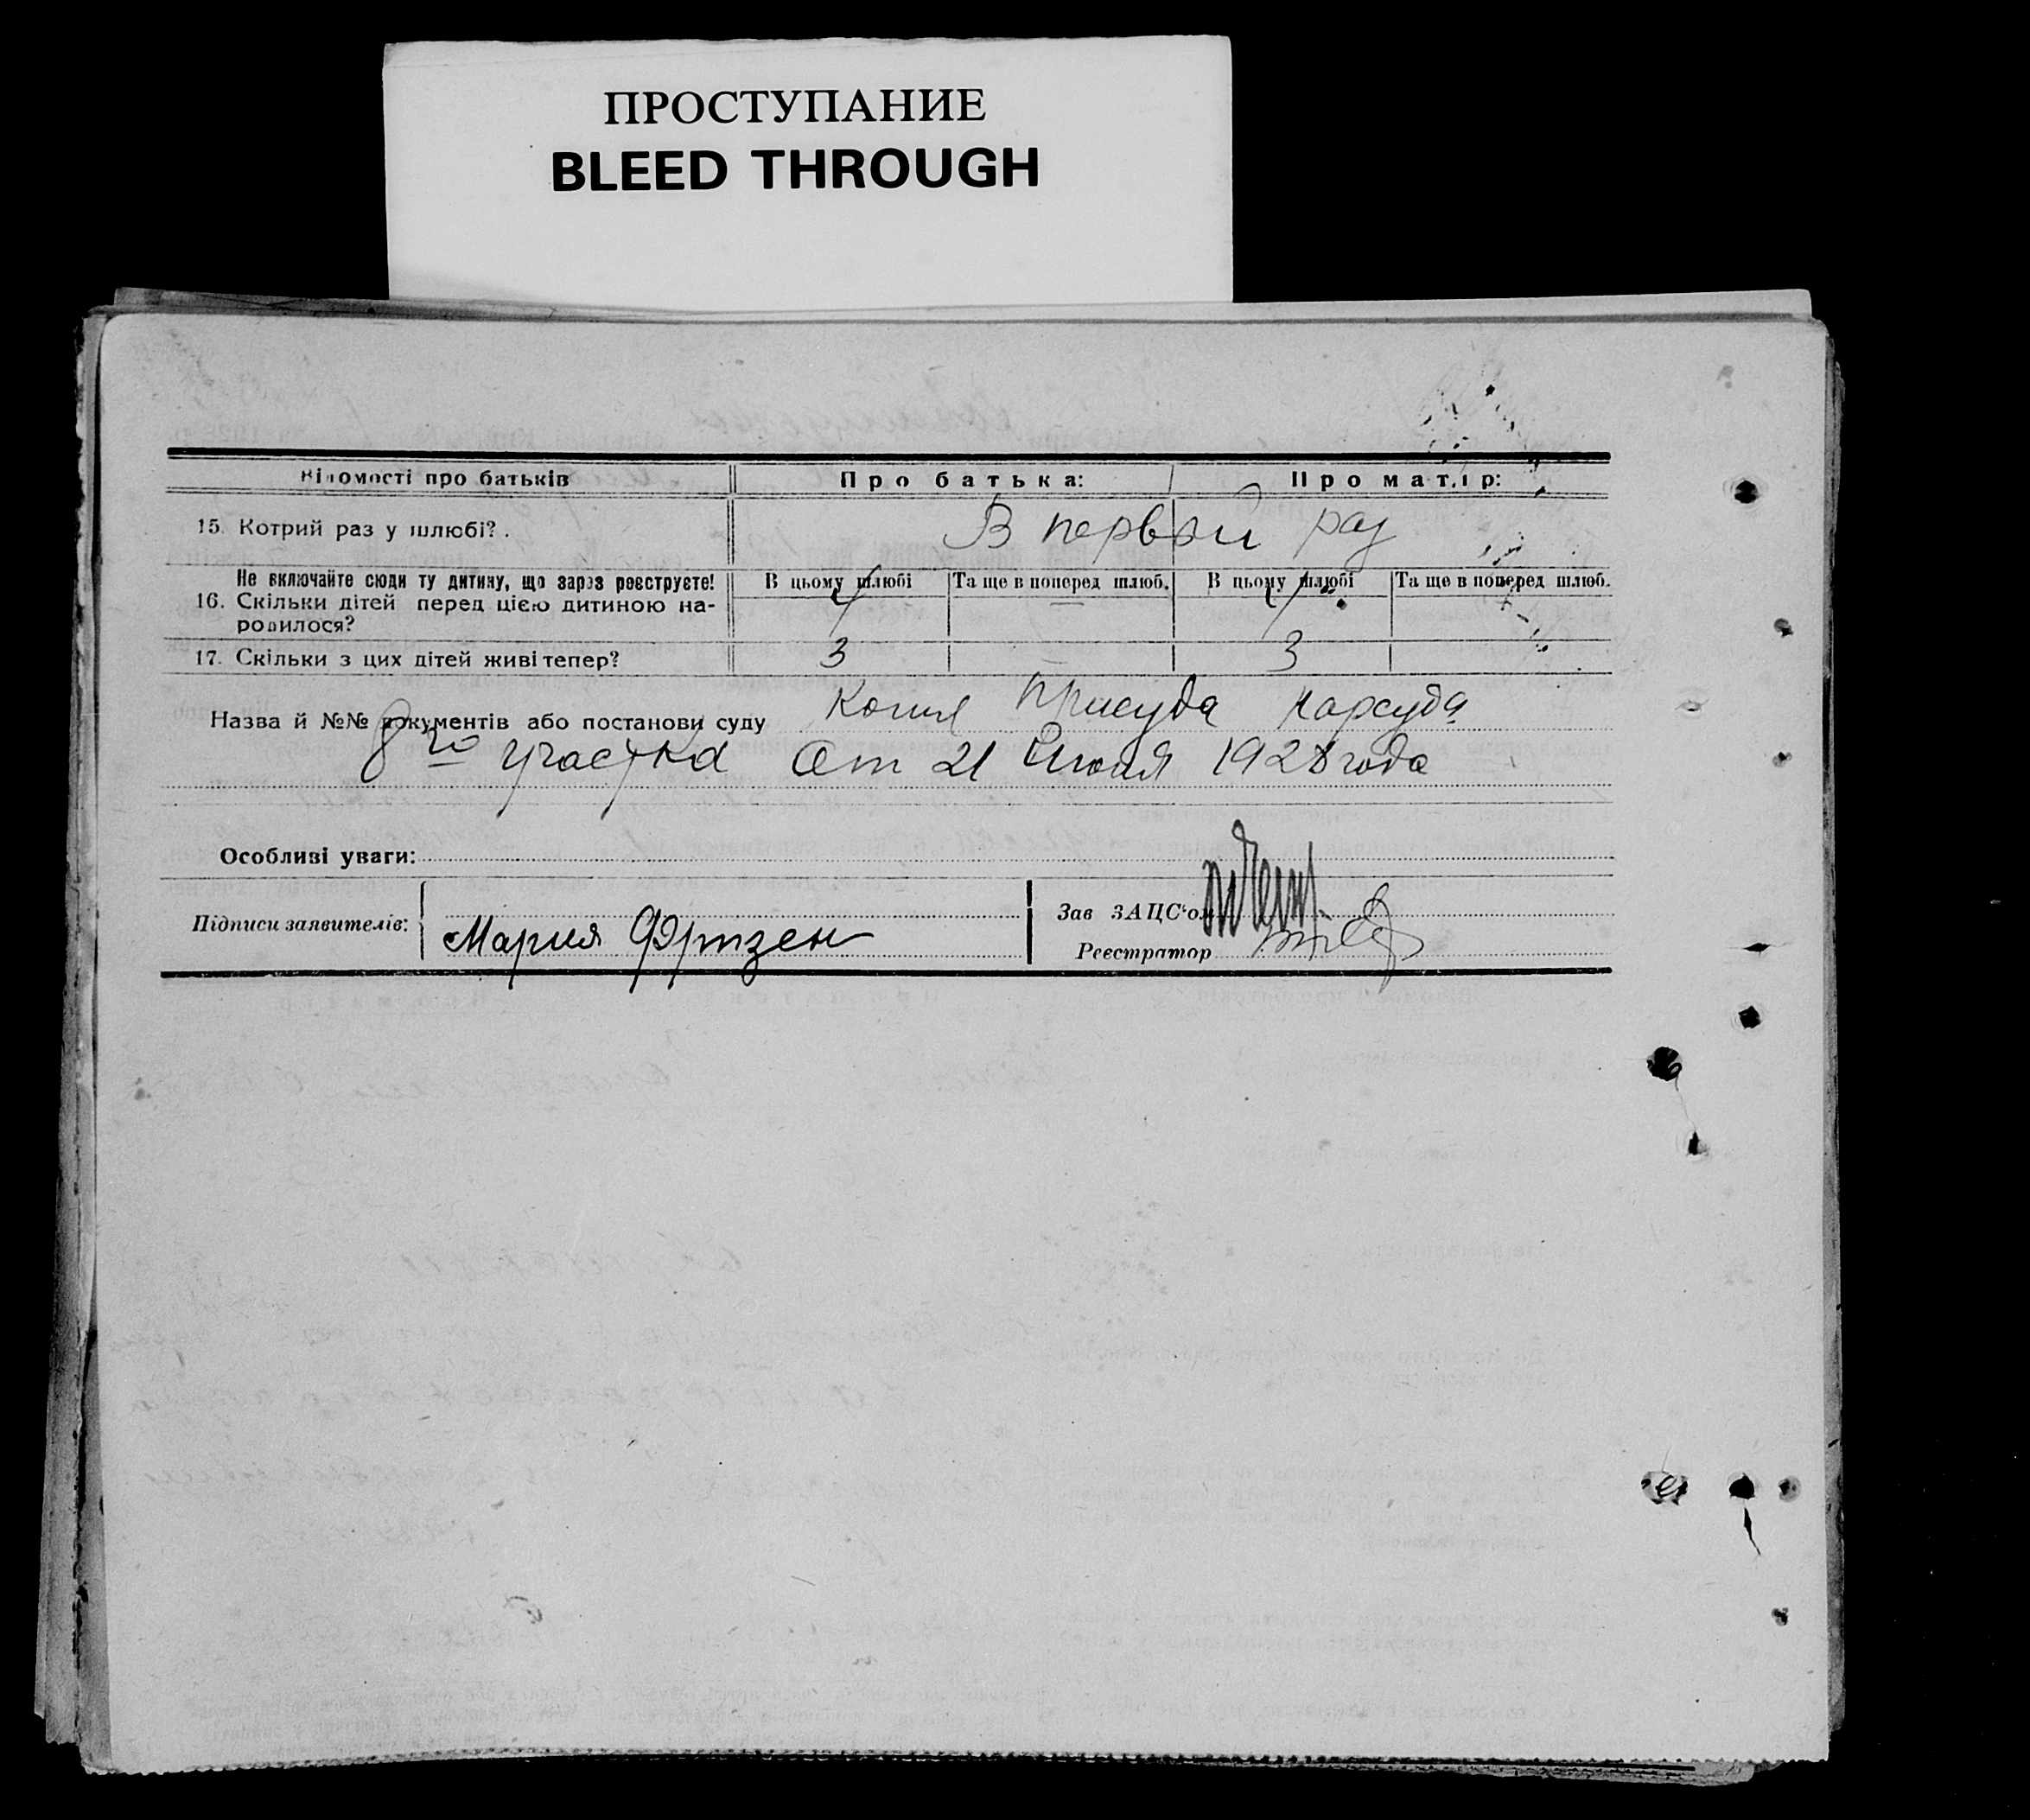 ПРОСТУПАНИЕ
BLEED THROUGH
Відомості про батьків
Про батька:
Про матір:
15. Котрий раз у шлюбі?.
В первый раз
Не включайте сюди ту дитину, що зараз реєструєте!
16. Скільки дітей перед цією дитиною на-
родилося?
В цьому шлюбі
Та ще в поперед шлюб.
В цьому шлюбі
Та ще в поперед шлюб.
4
—
4
17. Скільки з цих дітей живі тепер?
3
3
Назва й №№ документів або постанови суду Копия присуда нарсуда
8го участка от 21 Июня 1928 года
Особливі уваги:
Підписи заявителів:
Мария Фртзен
Зав ЗАЦС‘ом
Реєстратор